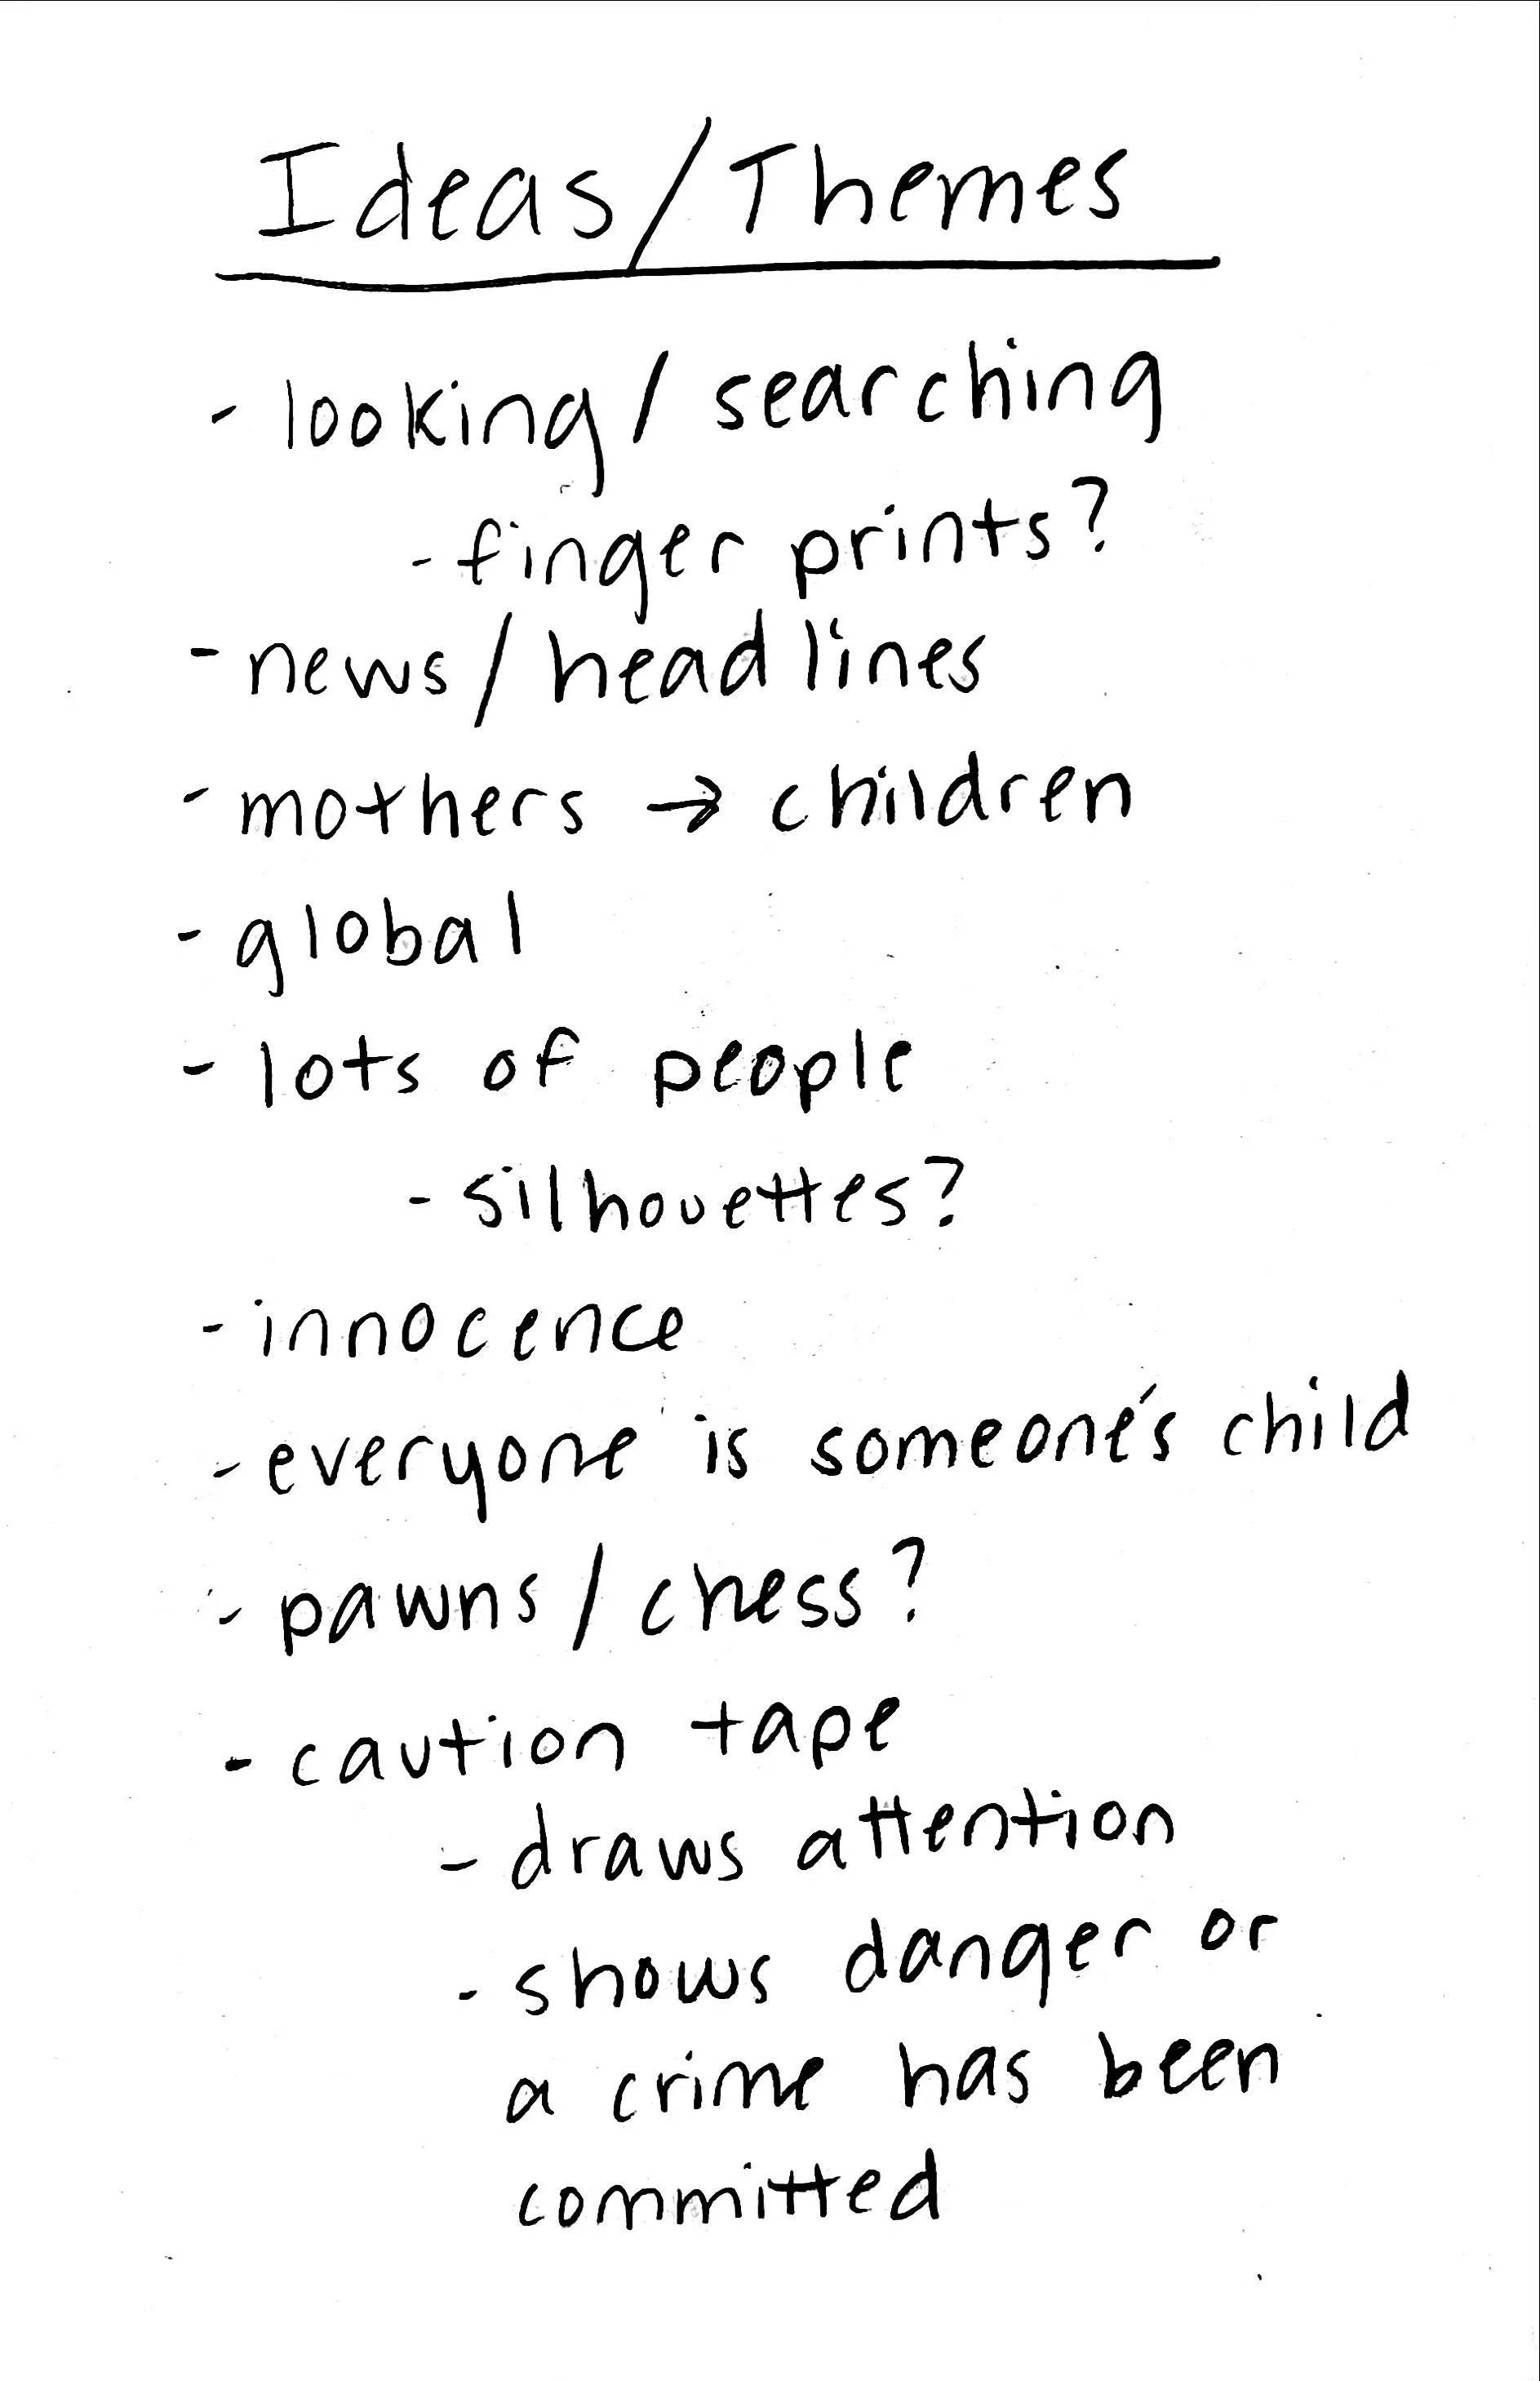 Ideas/Themes
- looking/ searching
- finger prints?
- news/headlines
- mothers → children
- global
- lots of people
- silhouettes?
- innocence
- everyone is someone's child
- pawns/chess?
- caution tape
- draws attention
- shows danger or
a crime has been
committed